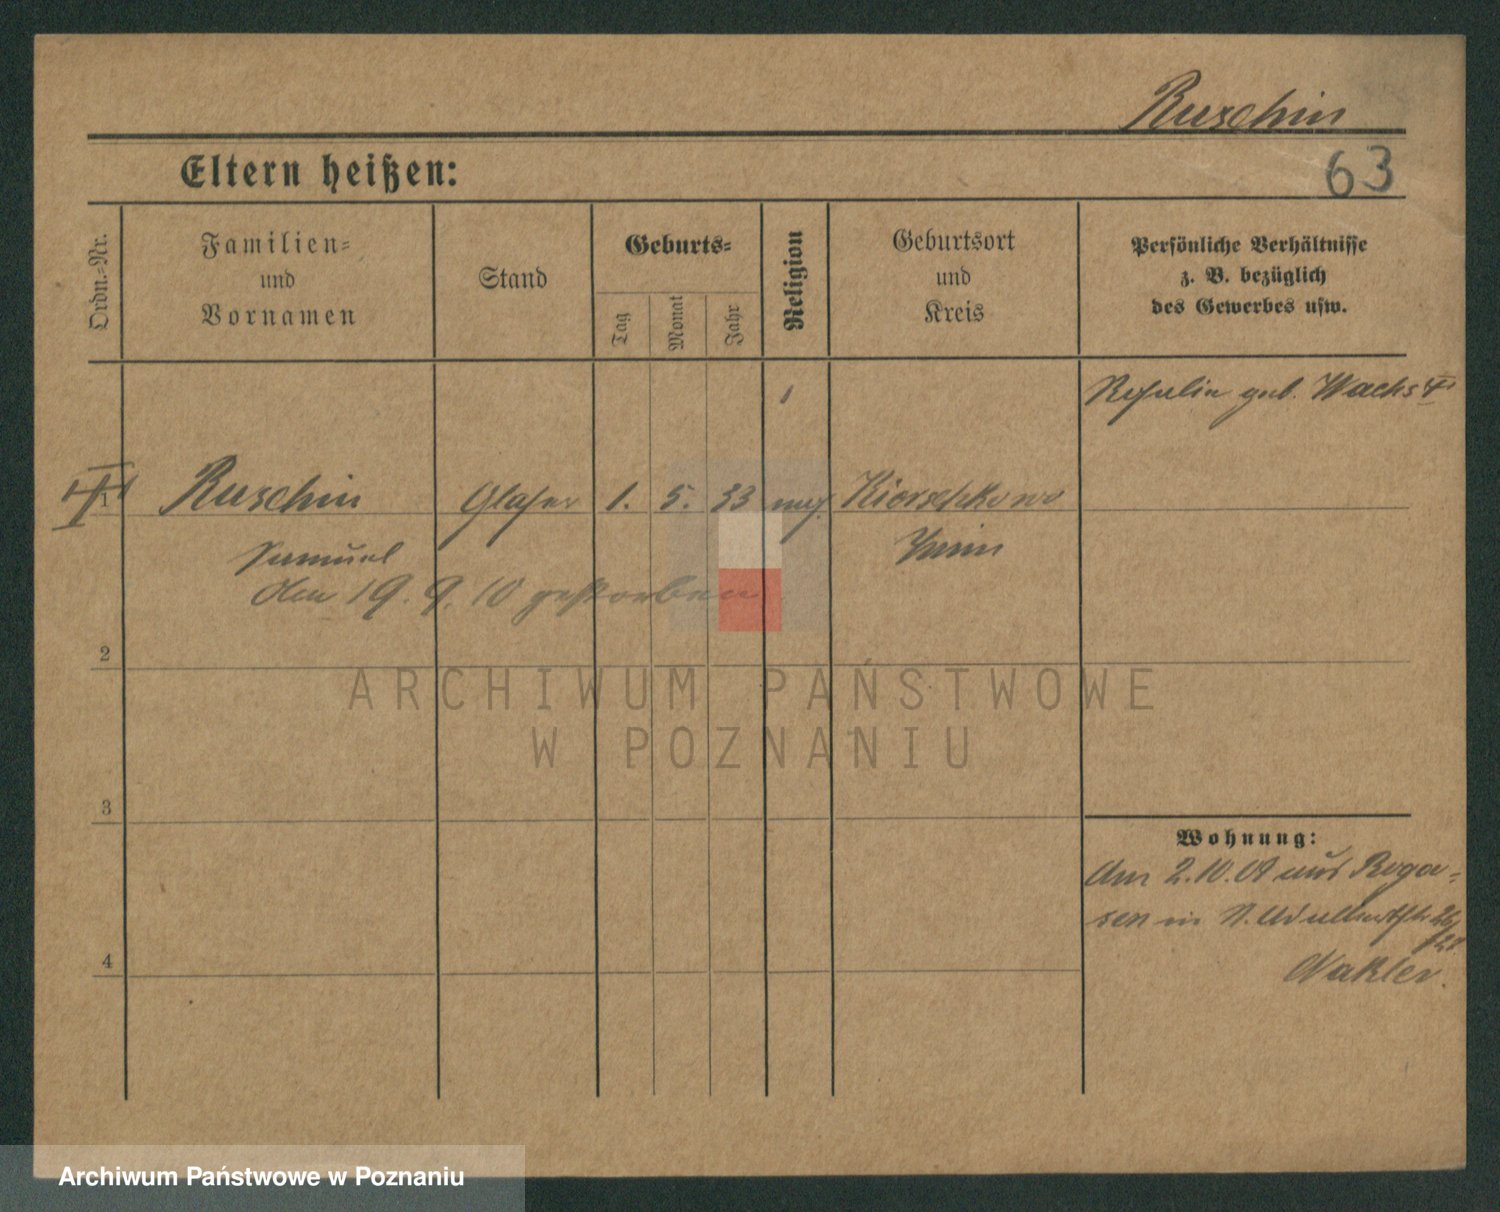 Ruschin
Eltern heißen:
63
Ordn.-Nr.
Familien-
und
Vornamen
Stand
Geburts-
Tag
Monat
Jahr
Religion
Geburtsort
und
Kreis
Persönliche Verhältnisse
z. B. bezüglich
des Gewerbes usw.
geb. Wachs
1
Ruschin
Glaser
1.
5.
33
mos.
Samuel
Znin
den 19. 9. 10 gestorben
2
3
4
Wohnung:
Am 2.10.09 aus Roga-
sen in
Wakler.
ARCHIWUM PAŃSTWOWE
W POZNANIU
Archiwum Państwowe w Poznaniu